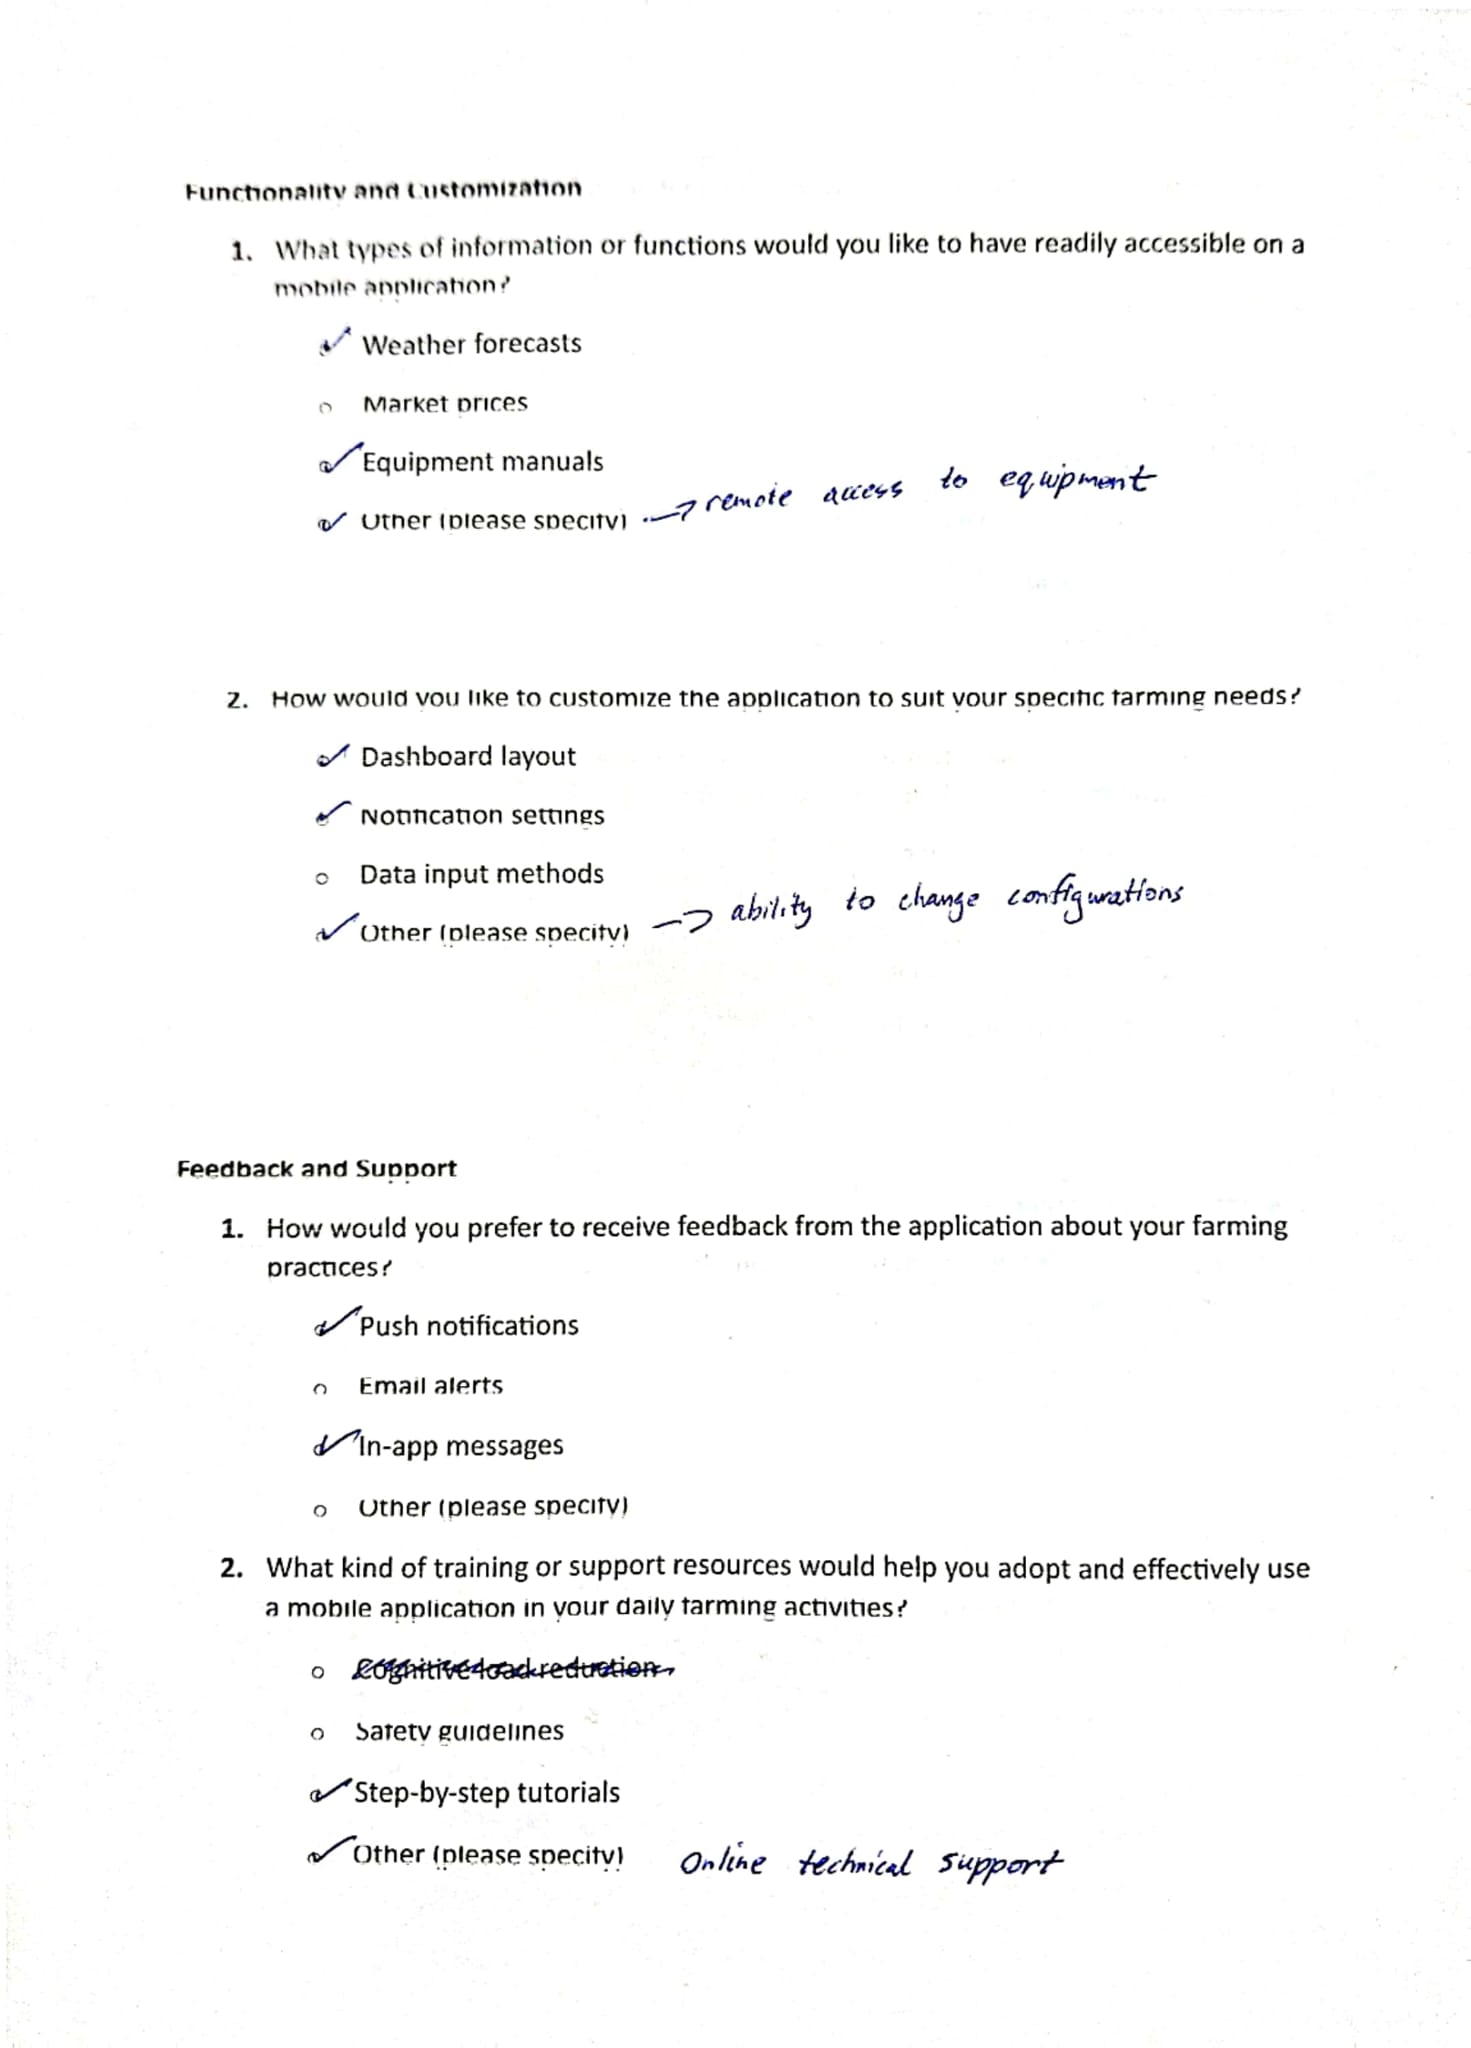 Functionality and Customization
1. What types of information or functions would you like to have readily accessible on a
mobile application?
✓ Weather forecasts
o Market prices
✓ Equipment manuals
✓ Other (please specify) → remote access to equipment
2. How would you like to customize the application to suit your specific farming needs?
✓ Dashboard layout
✓ Notification settings
o Data input methods
✓ Other (please specify) → ability to change configurations
Feedback and Support
1. How would you prefer to receive feedback from the application about your farming
practices?
✓ Push notifications
o Email alerts
✓ In-app messages
o Other (please specify)
2. What kind of training or support resources would help you adopt and effectively use
a mobile application in your daily farming activities?
o Cognitive load reduction
o Safety guidelines
✓ Step-by-step tutorials
✓ Other (please specify) Online technical support